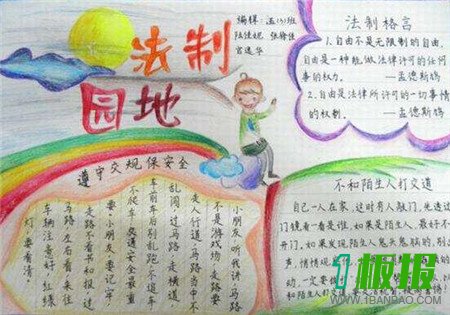 法制
园地
陆佳妮
法制格言
1.自由不是无限制的自由,
自由是一种能做法律许可的任何
事的权力。——孟德斯鸠
2.自由是法律所许可的一切事情
的权利。——孟德斯鸠
遵守交规保安全
小朋友听我讲,马路
不是游戏场,走马路
走人行道,马路当中不
乱闯,过马路,走横道,
车前车别乱跑,不追车
不爬车,交通安全最重
要。小朋友,要记牢,
走路不看书和报,过
马路,左右看,来往
车辆注意好,红绿
灯,要看清。
不和陌生人打交道
自己一人在家,这时有人敲门,他透过
门镜看一看是谁,如果是陌生人,最好不
开门。如果发现陌生人鬼鬼祟祟的,别出
声,悄悄
动,一定要
和陌生人打交道
1板报
WWW.1BANBAO.COM